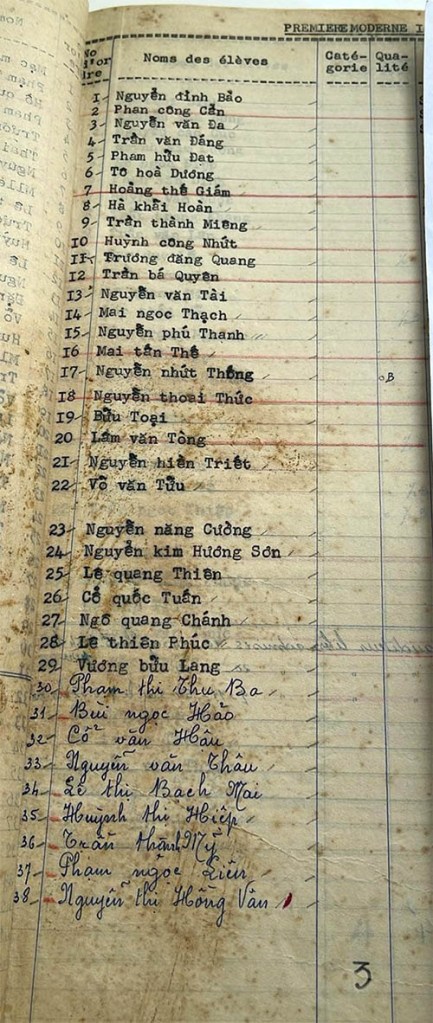 PREMIERE MODERNE I
No d'or dre Noms des élèves Caté- gorie Qua- lité
1- Nguyễn đình Bảo
2 Phan công Cẩn
3- Nguyễn văn Đa
4- Trần văn Đáng
5 Phạm hữu Đạt
6 Tô hoà Dương
7 Hoàng thế Giám
8- Hà khải Hoàn
9- Trần thành Miêng
10 Huỳnh công Nhút
11- Trương đăng Quang
12 Trần bá Quyên
13- Nguyễn văn Tài
14- Mai ngọc Thạch
15- Nguyễn phú Thạnh
16 Mai tấn Thế
17- Nguyễn nhút Thống B
18 Nguyễn thoại Thức
19- Bửu Toại
20 Lâm văn Tòng
21- Nguyễn hiền Triết
22- Võ văn Tửu
23- Nguyễn năng Cường
24- Nguyễn kim Hương Sơn
25- Lê quang Thiên
26 Cổ quốc Tuấn
27- Ngô quang Chánh
28- Lê thiên Phúc
29- Vương bửu Lang
30- Phạm thị Thu Ba
31- Bùi ngọc Hảo
32- Cổ văn Hậu
33- Nguyễn văn Thâu
34- Lê thị Bạch Mai
35- Huỳnh thị Hiệp
36- Trần thành Mỹ
37- Phạm ngọc Liên
38- Nguyễn thị Hồng Vân
3